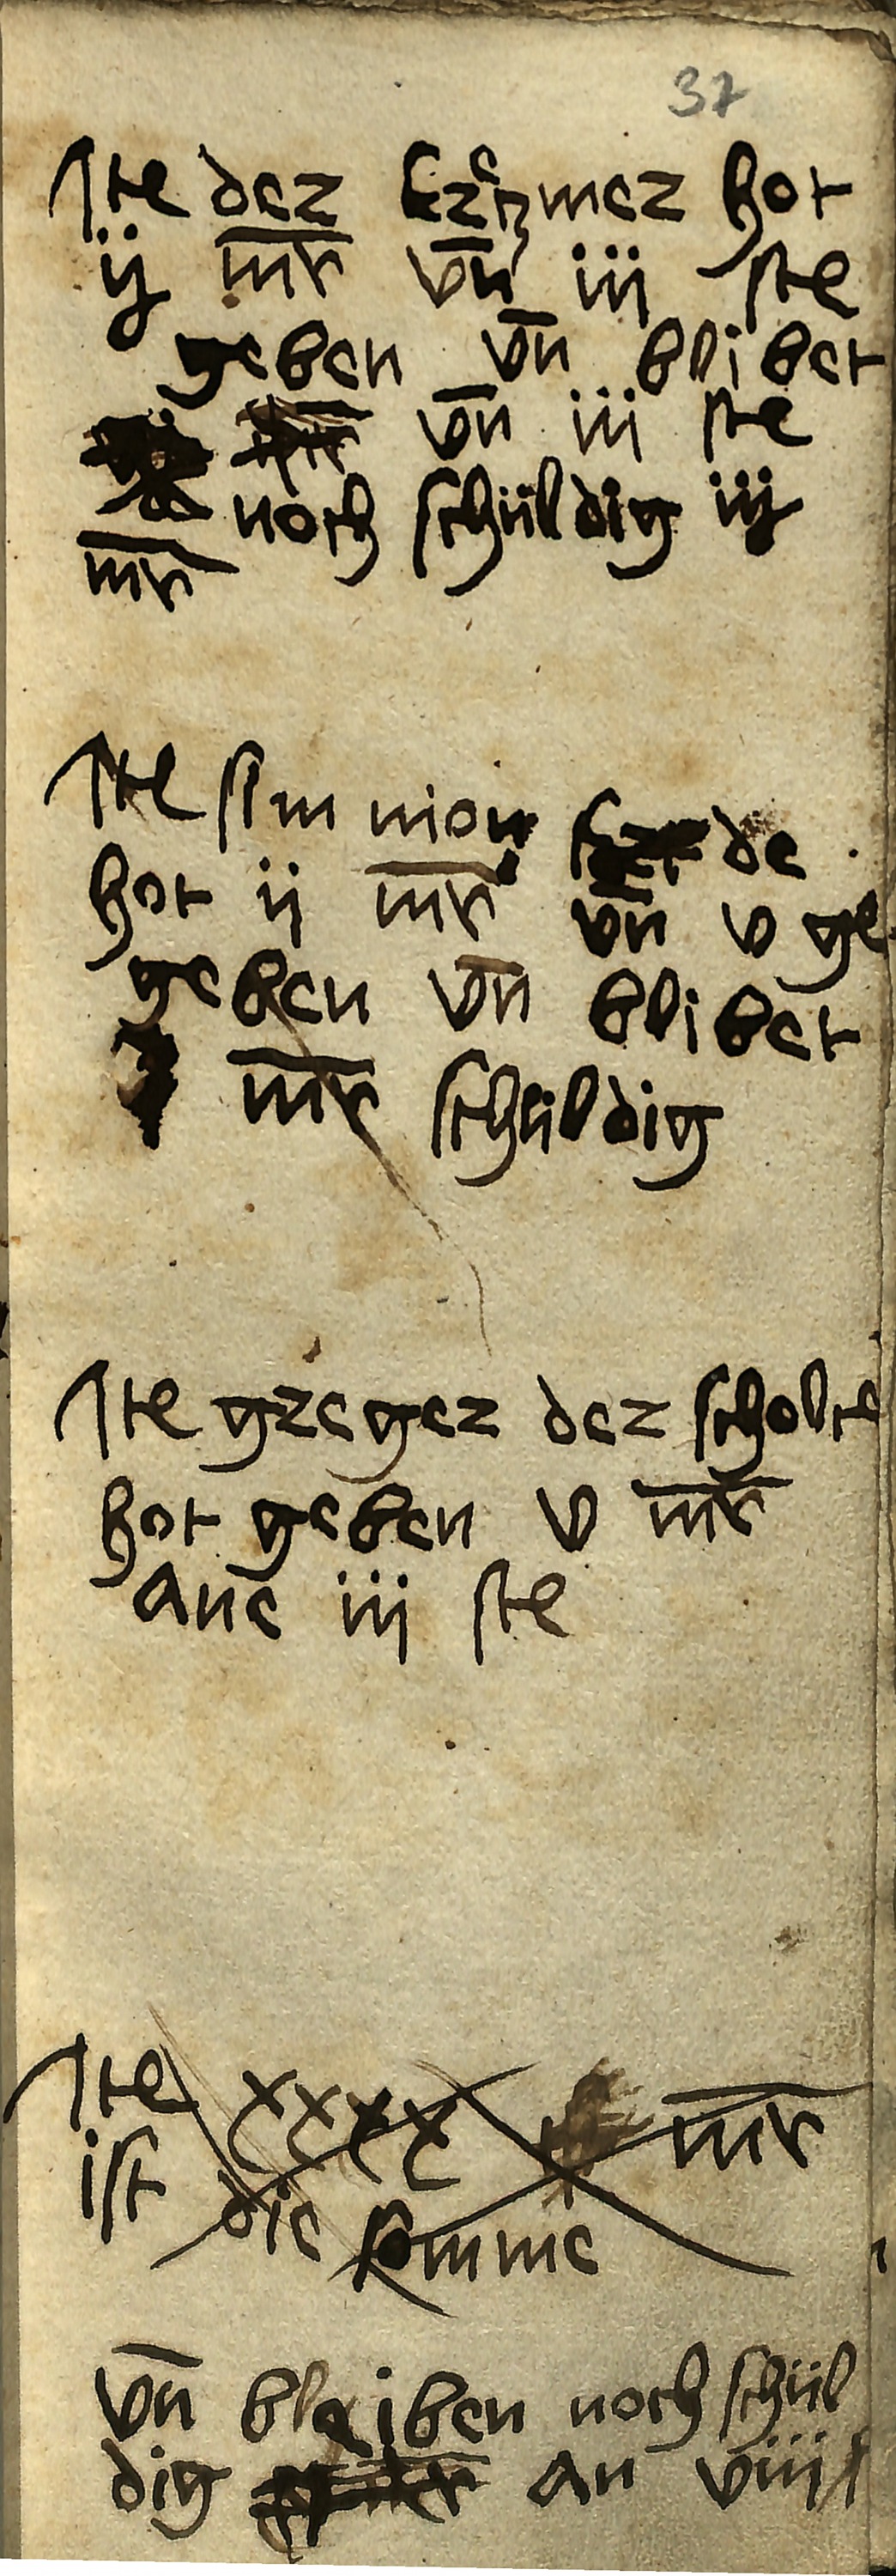 37
Ite der kreczmer hot
ij mr vn̄ iij ste
geben vn̄ blibet
vn̄ iij ste
noch schüldig iij
mr
Ite simmon de
hot ij mr vn̄ v ge
geben vn̄ blibet
mr schüldig
Ite greger der scholte
hot geben v mr
ane iij ste
Ite xxxx mr
ist die somme
vn̄ bleiben noch schül
dig an viij